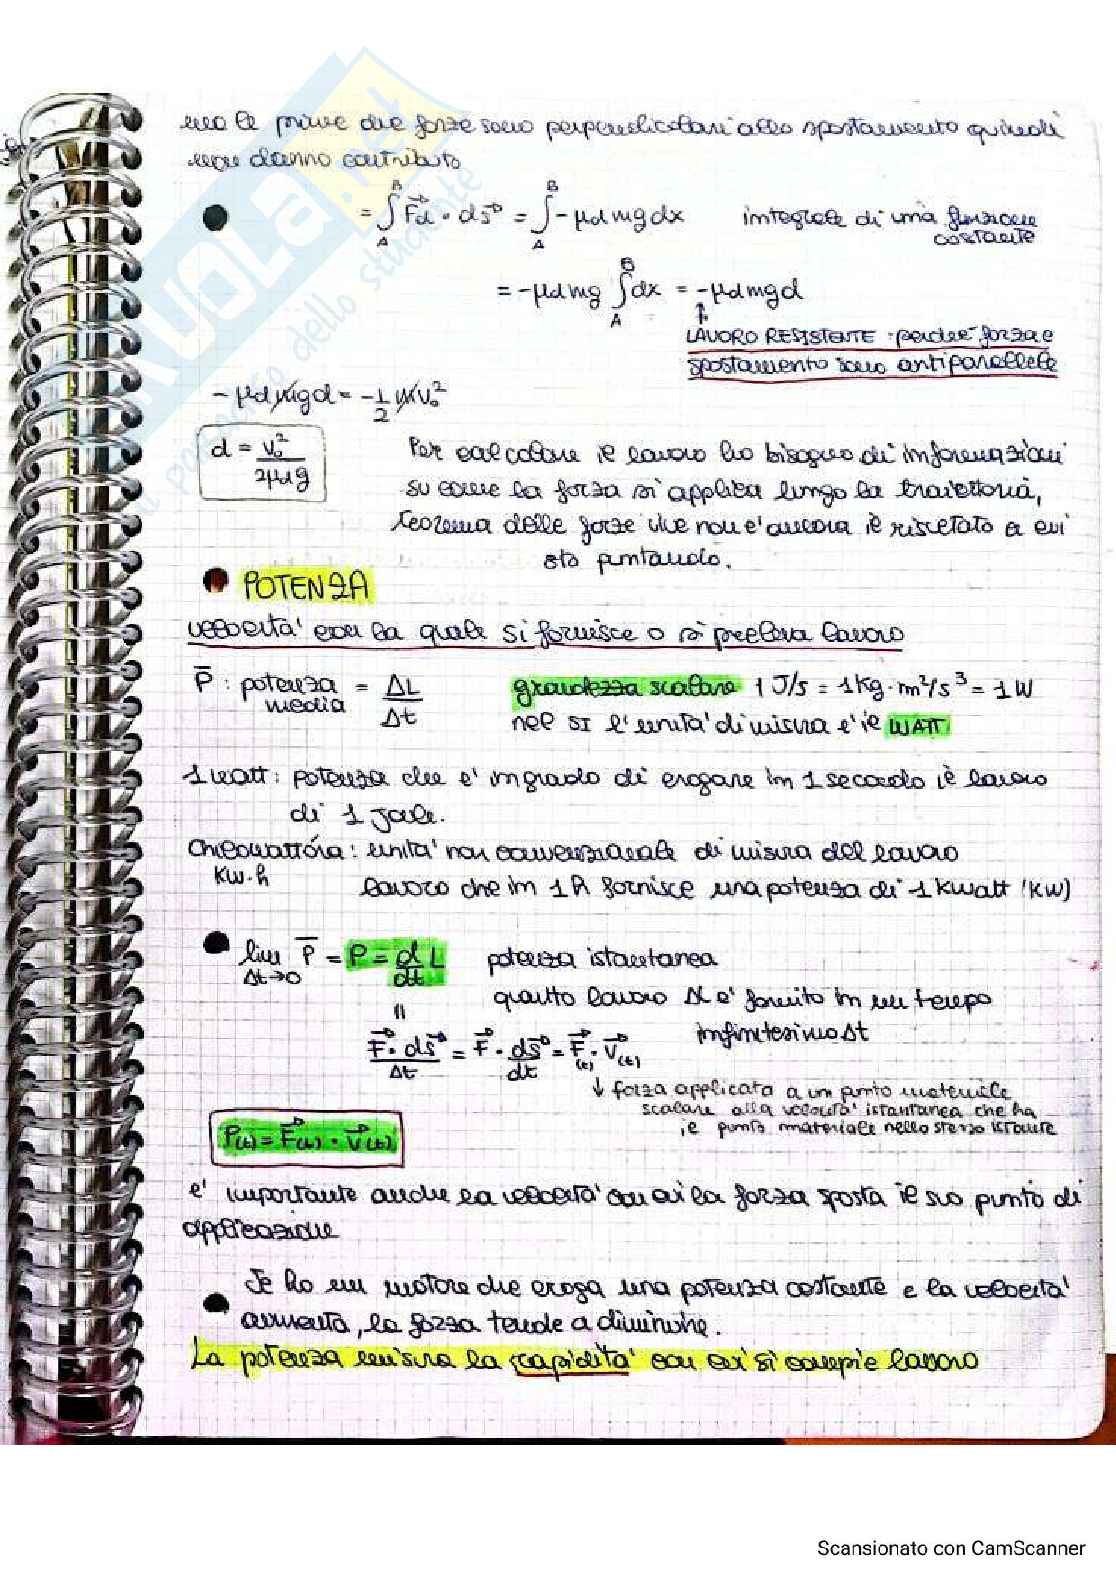 ma le prime due forze sono perpendicolari allo spostamento quindi
non danno contributo
= ∫_A^B F⃗d · ds⃗ = ∫_A^B -μd mg dx integrale di una funzione
costante
= -μd mg ∫_A^B dx = -μd mg d
LAVORO RESISTENTE perché forza e
spostamento sono antiparallele
- μd mg d = -1/2 m v₀²
d = v₀²/2μd g
Per calcolare il lavoro ho bisogno di informazioni
su come la forza si applica lungo la traiettoria,
teorema delle forze vive non è ancora il risultato a cui
sto puntando.
POTENZA
velocità con la quale si fornisce o si preleva lavoro
P̅ : potenza media = ΔL/Δt
grandezza scalare 1 J/s = 1 Kg · m²/s³ = 1 W
nel SI l'unità di misura è il WATT
1 watt : potenza che è in grado di erogare in 1 secondo il lavoro
di 1 Joule.
Chilowattóra : unità non convenzionale di misura del lavoro
KW·h lavoro che in 1 h fornisce una potenza di 1 Kwatt (KW)
lim Δt→0 P̅ = P = d/dt L potenza istantanea
quanto lavoro ΔL è fornito in un tempo
infinitesimo Δt
=
F⃗ · ds⃗/Δt = F⃗ · ds⃗/dt = F⃗(t) · V⃗(t)
↓ forza applicata a un punto materiale
scalare alla velocità istantanea che ha
il punto materiale nello stesso istante
P(t) = F⃗(t) · V⃗(t)
è importante anche la velocità con cui la forza sposta il suo punto di
applicazione
Se ho un motore che eroga una potenza costante e la velocità
aumenta, la forza tende a diminuire.
La potenza misura la rapidità con cui si compie lavoro
dello studente
Scansionato con CamScanner